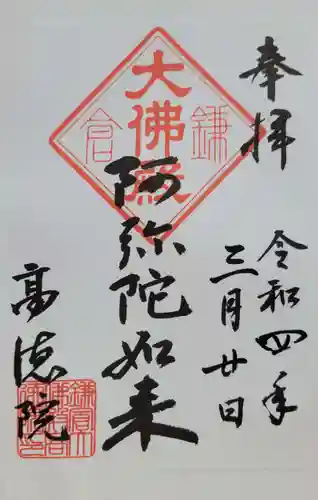 奉拝
令和四年
三月廿日
大佛殿
鎌倉
阿弥陀如来
高徳院